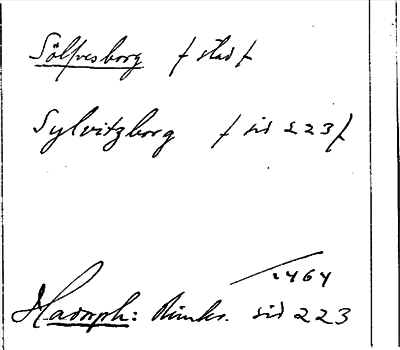 Sölfvesborg / stad /
Sylvitzborg / sid 223 /
1464
Hadorph: Rimkr. sid 223